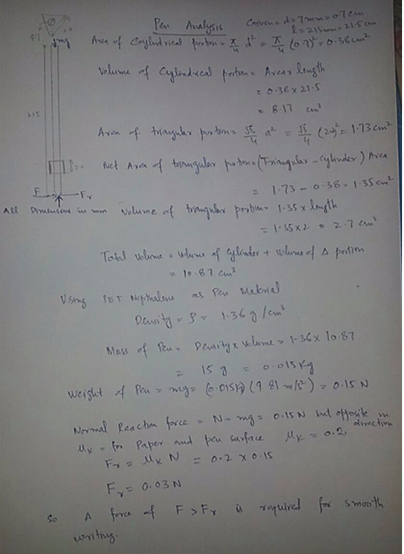 Pen Analysis
Given = d = 7mm = 0.7cm
l = 215mm = 21.5cm
Area of Cylindrical portion = π/4 d² = π/4 (0.7)² = 0.38 cm²
Volume of Cylindrical portion = Area × length
= 0.38 × 21.5
= 8.17 cm³
Area of triangular portion = √3/4 a² = √3/4 (2)² = 1.73 cm²
Net Area of triangular portion = (Triangular - cylinder) Area
= 1.73 - 0.38 = 1.35 cm²
Volume of triangular portion = 1.35 × length
= 1.35 × 2 = 2.7 cm³
Total volume = volume of cylinder + volume of Δ portion
= 10.87 cm³
Using as Pen Material
Density = ρ = 1.36 g/cm³
Mass of Pen = Density × volume = 1.36 × 10.87
= 15 g = 0.015 kg
Weight of Pen = mg = (0.015kg) (9.81 m/s²) = 0.15 N
Normal Reaction force = N = mg = 0.15 N but opposite in direction
μk = for Paper and pen surface μk = 0.2
Fr = μk N = 0.2 × 0.15
Fr = 0.03 N
So A force of F > Fr is required for smooth
writing.
mg
215
F
Fr
All Dimensions in mm